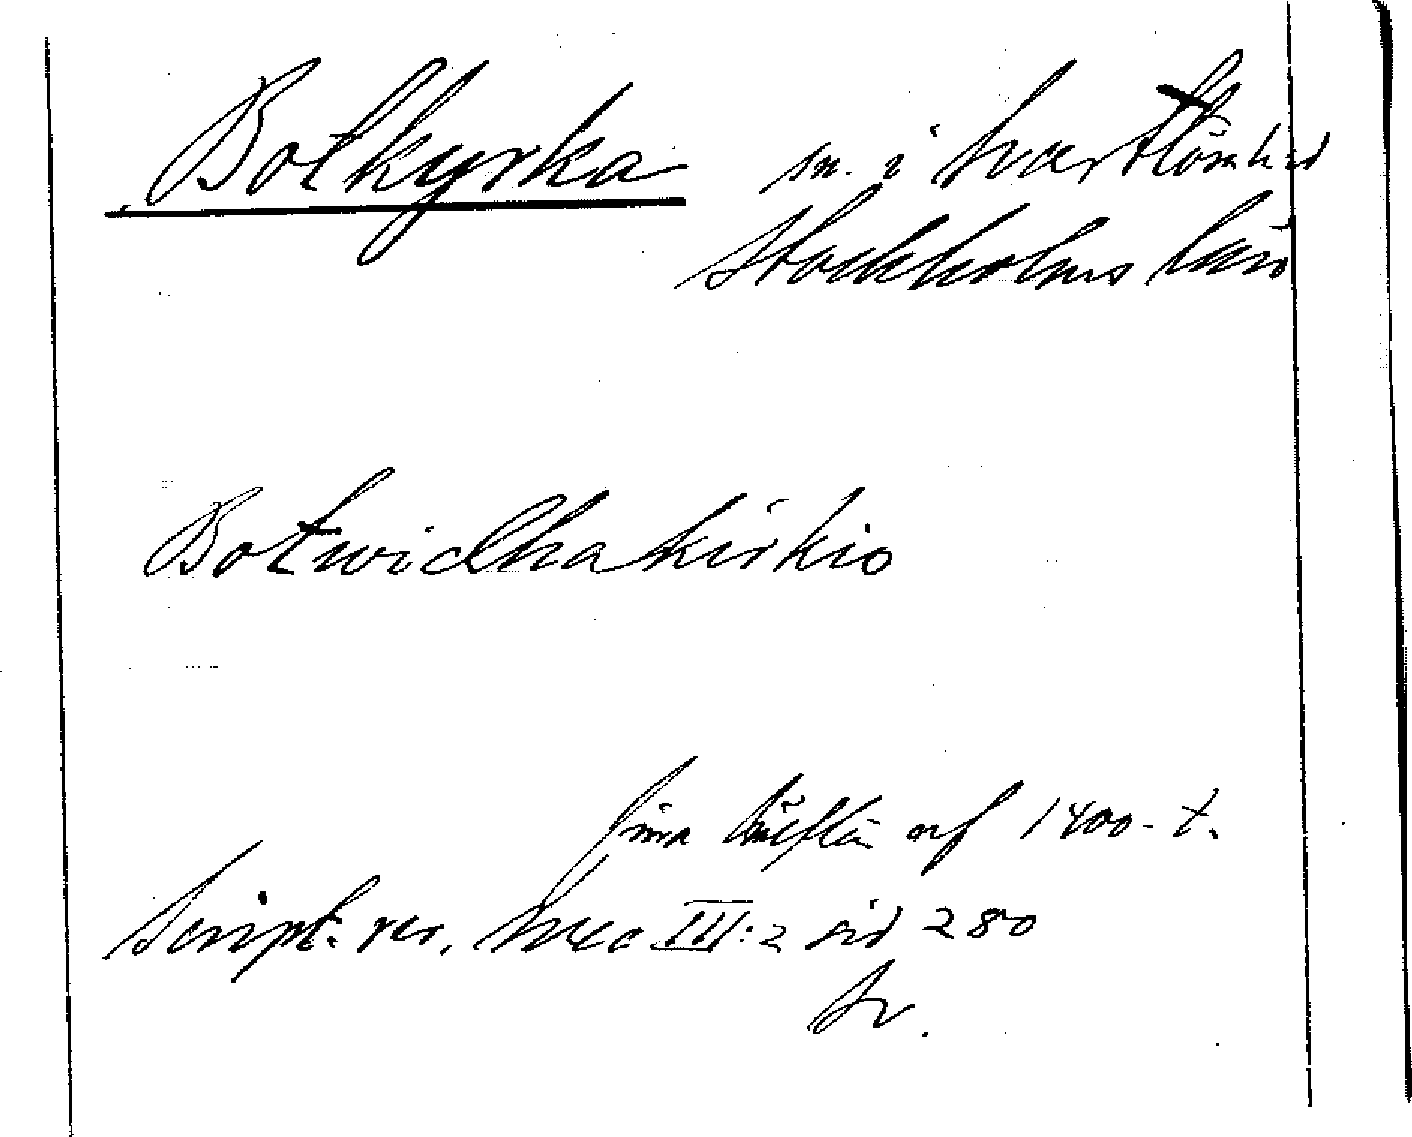 Botkyrka sn. i Svartlösa hd
Stockholms län
Botwidha kirkio
sina hälfth af 1400-t.
Script. rer. Svec III:2 sid 280
Sv.